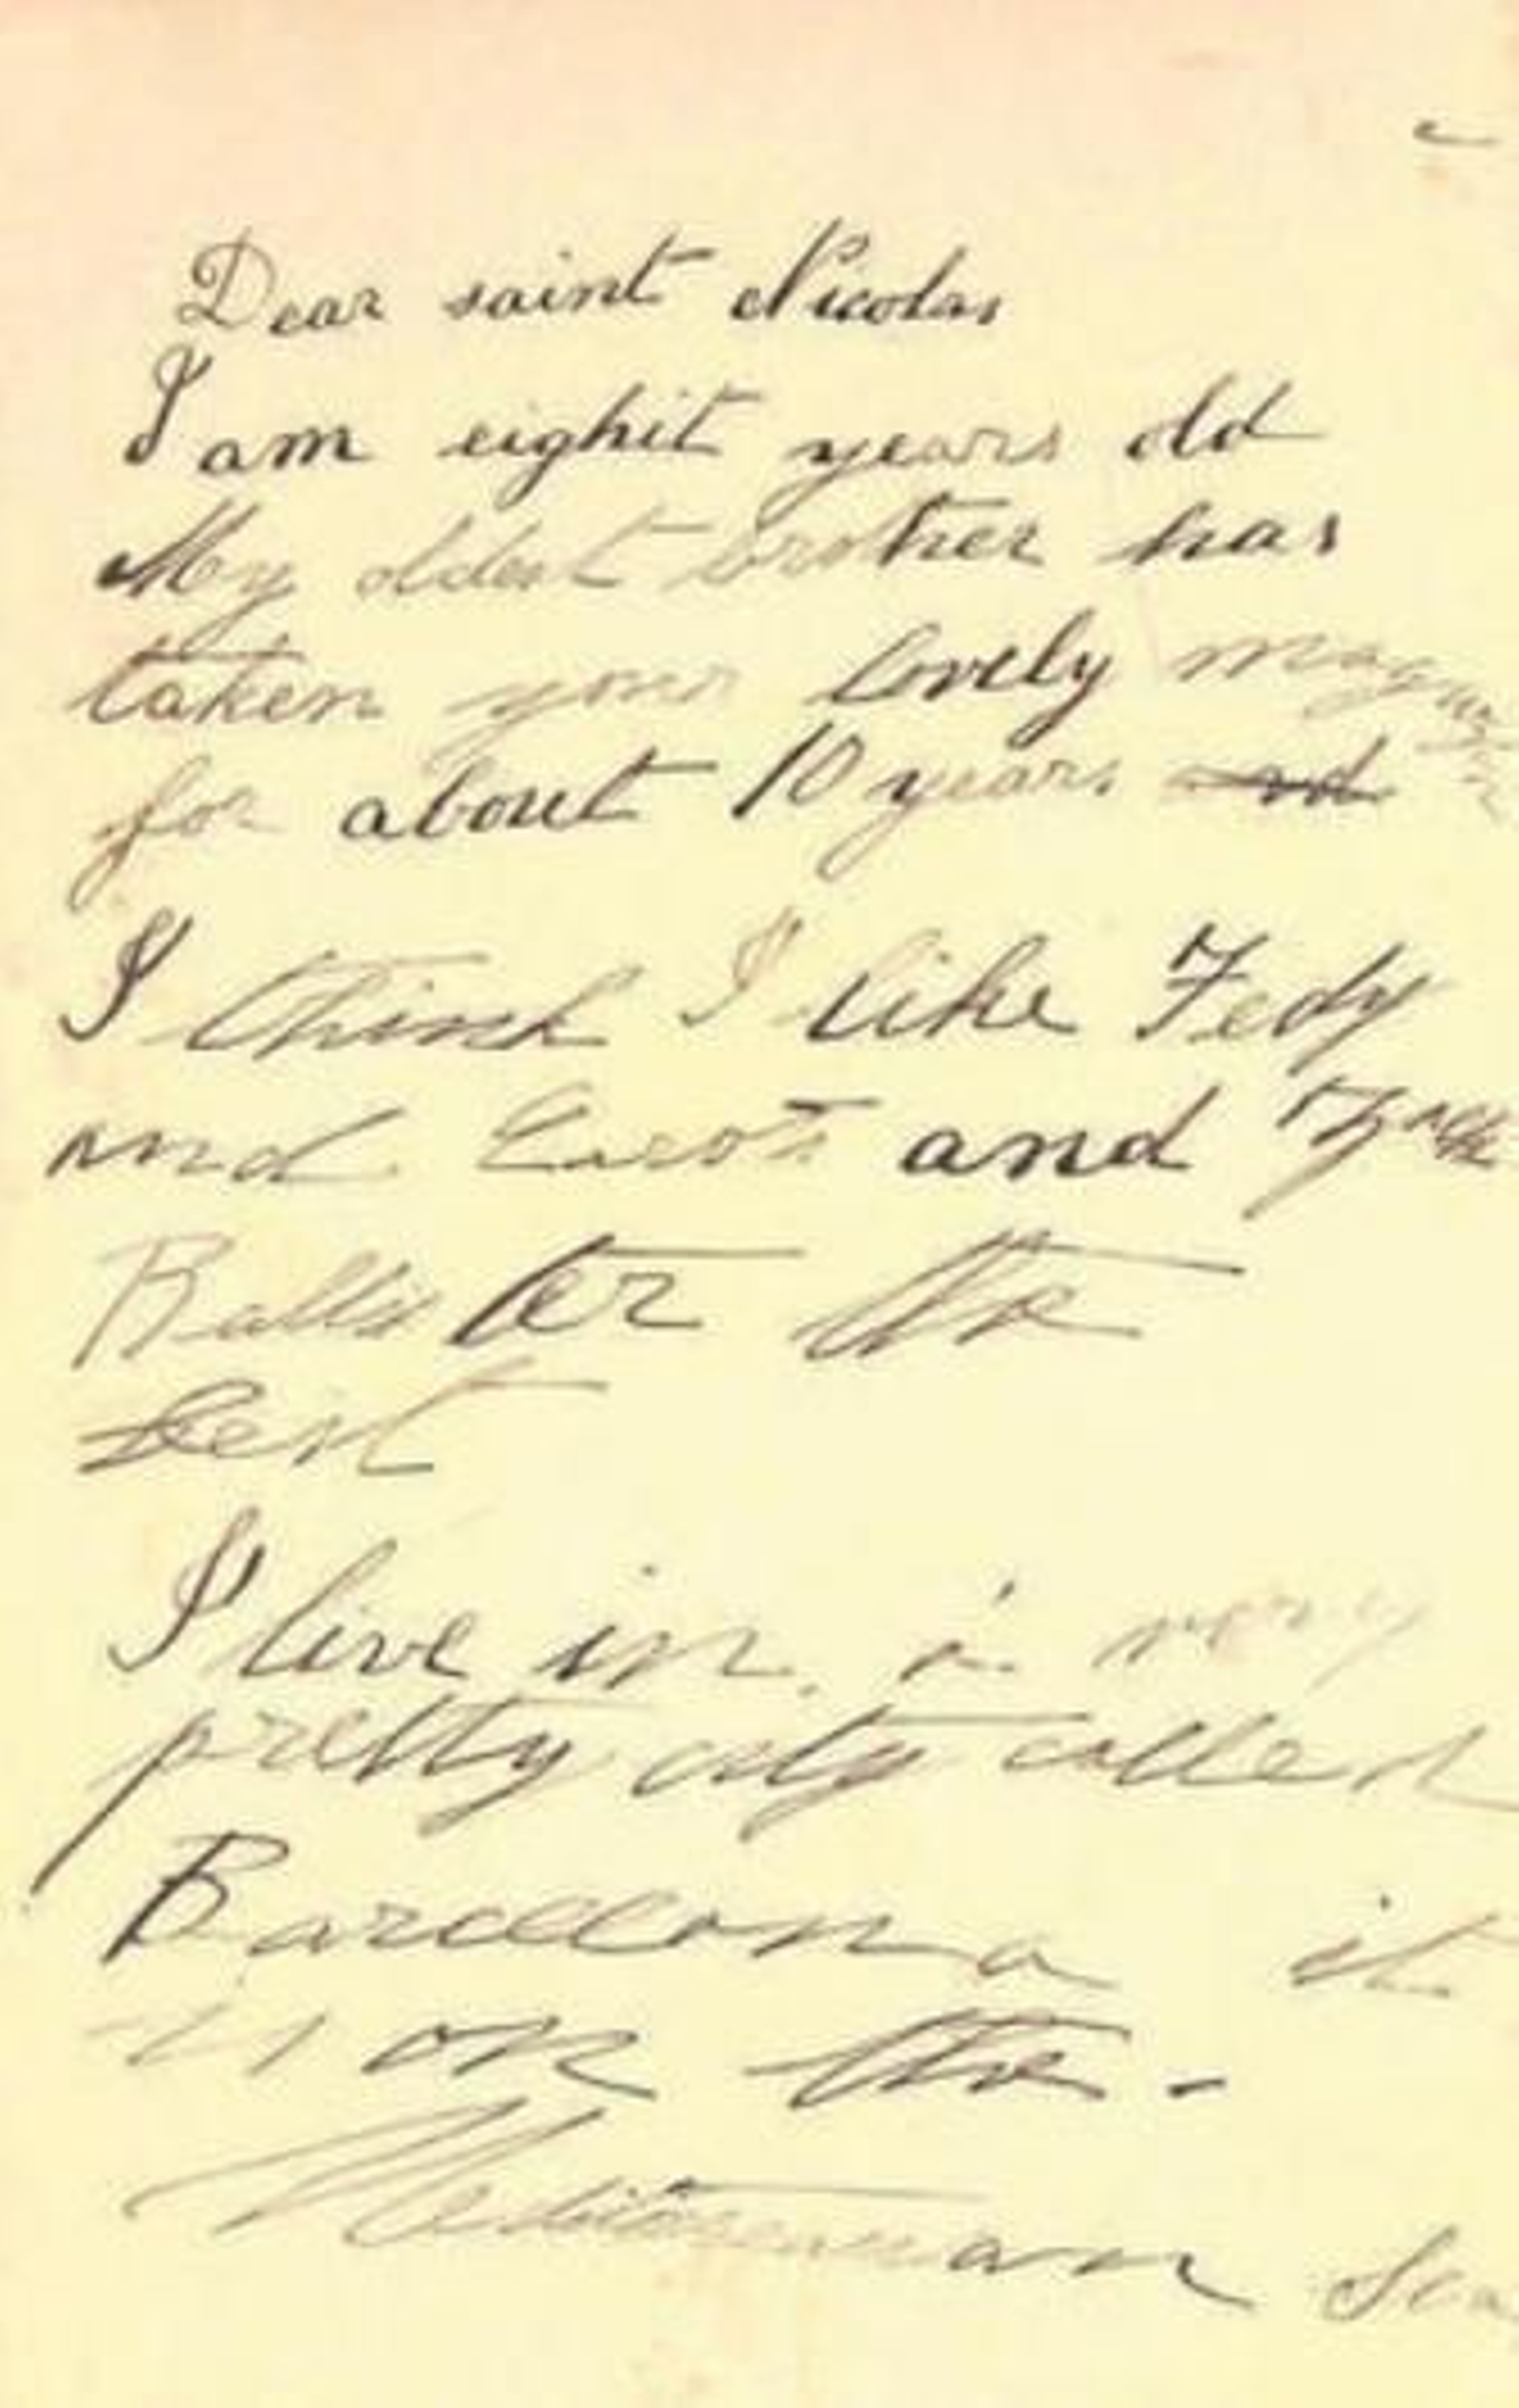 Dear saint Nicolas
I am eighit years old
My oldest brother has
taken your lovely magazine
for about 10 years
I think I like Tedy
and and
the
best
I live in a very
pretty city called
Barcelona it
is on the -
Mediteranean Sea